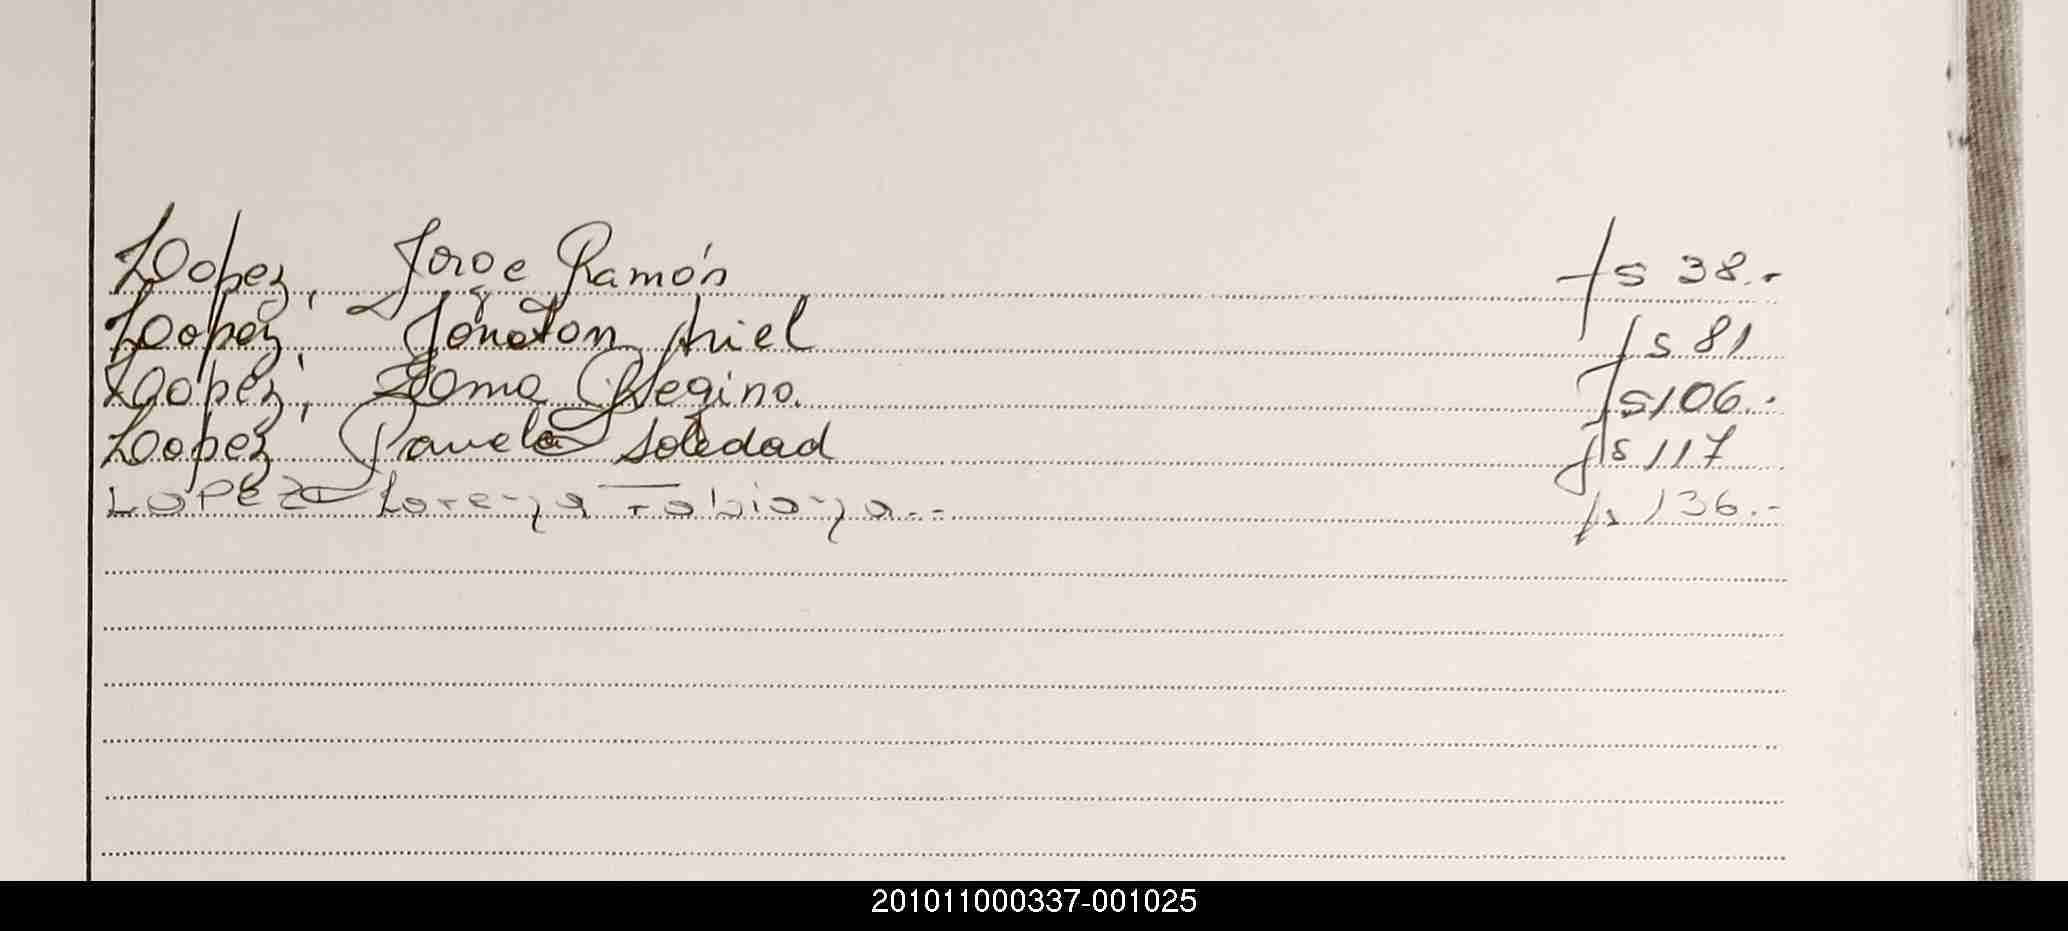 Lopez, Jorge Ramón fs 38.-
Lopez, Jonatan Ariel fs 81
Lopez, Regina. fs 106.-
Lopez Pamela Soledad fs 117
LOPEZ Lorenza Fabiana.-- fs 136.-
201011000337-001025